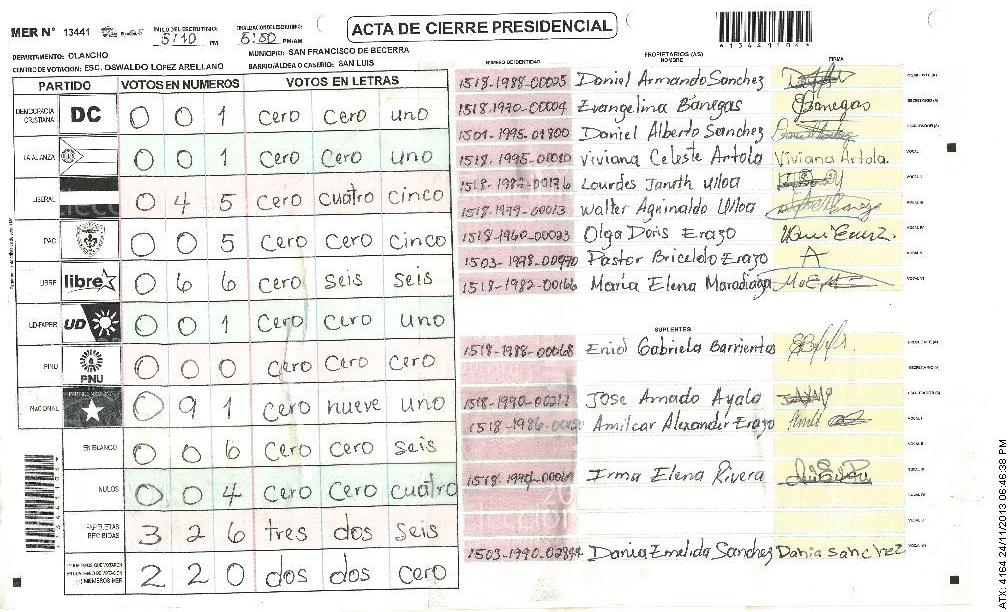 MER N° 13441
INICIO DEL ESCRUTINIO: 5:10 PM
FINALIZACION DEL ESCRUTINIO: 5:50 PM/AM
ACTA DE CIERRE PRESIDENCIAL
DEPARTAMENTO: OLANCHO
MUNICIPIO: SAN FRANCISCO DE BECERRA
CENTRO DE VOTACION: ESC. OSWALDO LOPEZ ARELLANO
BARRIO/ALDEA O CASERIO: SAN LUIS
PARTIDO VOTOS EN NUMEROS VOTOS EN LETRAS
DEMOCRACIA CRISTIANA DC 0 0 1 cero cero uno
LA ALIANZA 0 0 1 cero cero uno
LIBERAL 0 4 5 cero cuatro cinco
PAC 0 0 5 cero cero cinco
LIBRE libre 0 6 6 cero seis seis
UD-FAPER UD 0 0 1 cero cero uno
PINU PNU 0 0 0 cero cero cero
NACIONAL 0 9 1 cero nueve uno
EN BLANCO 0 0 6 cero cero seis
NULOS 0 0 4 cero cero cuatro
PAPELETAS RECIBIDAS 3 2 6 tres dos seis
2 2 0 dos dos cero
NUMERO DE IDENTIDAD
PROPIETARIOS (AS)
NOMBRE
FIRMA
1518-1988-00005 Daniel Armando Sanchez
1518-1970-00004 Evangelina Banegas Banegas
1501-1995-01800 Daniel Alberto Sanchez
1518-1995-01010 Viviana Celeste Artola Viviana Artola.
1518-1982-00176 Lourdes Janeth Ulloa
1518-1979-00013 Walter Aguinaldo Ulloa
1518-1960-00023 Olga Doris Erazo
1503-1978-00970 Pastor Briceldo Erazo
1518-1982-00166 Maria Elena Maradiaga
SUPLENTES
1518-1988-00068 Enid Gabriela Barrientos
1518-1990-00217 Jose Amado Ayala
1518-1986- Amilcar Alexander Erazo
Irma Elena Rivera
1503-1990-02844 Dania Emelida Sanchez Dania sanchez
ATX: 4164 24/11/2013 06:46:38 PM